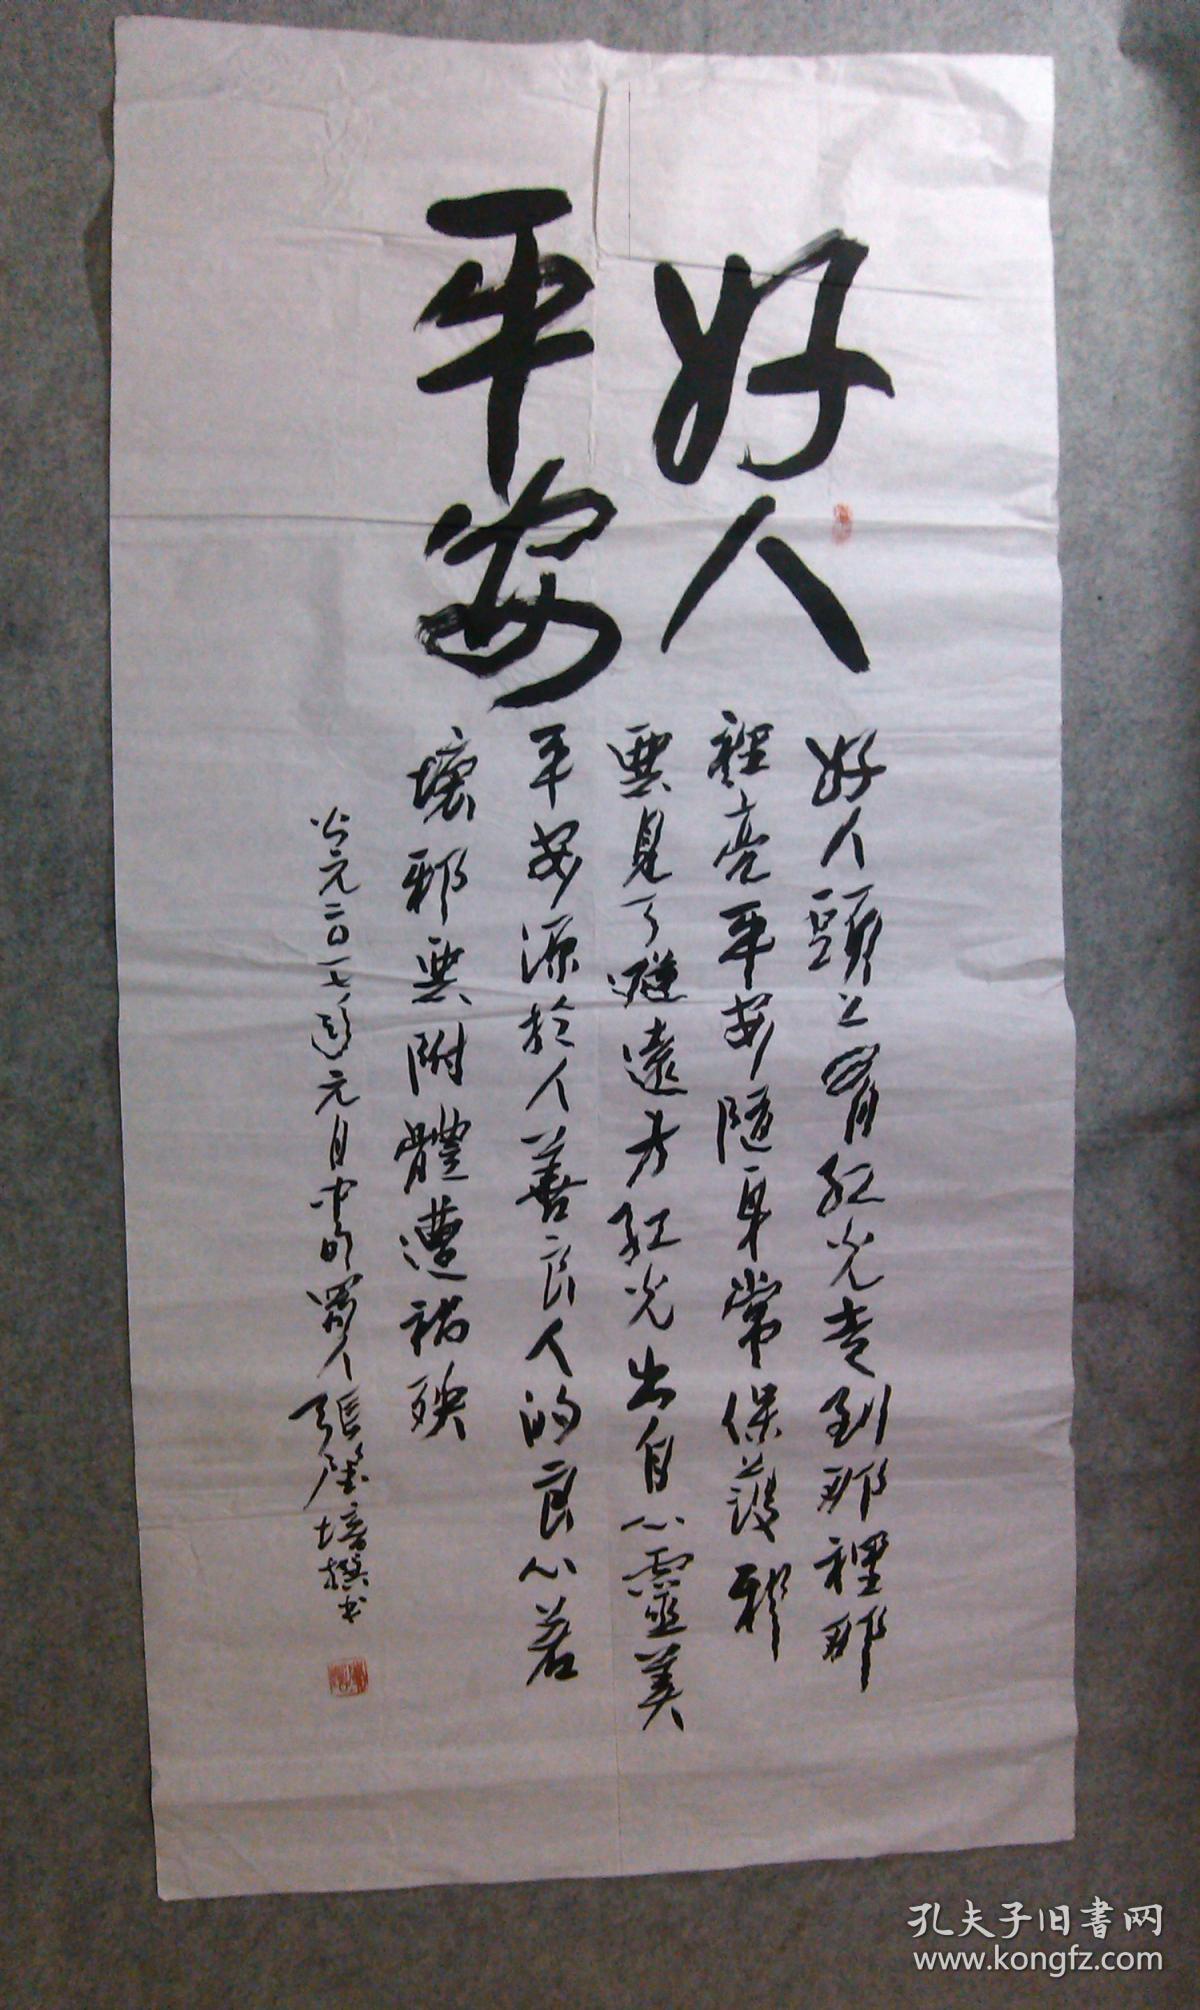 好人
平安
好人頭上有紅光走到那裡那
裡亮平安隨身常保護邪
惡見了避遠方紅光出自心靈美
平安源於人善良人的良心若
壞邪惡附體遭禍殃
公元二〇一七年元月中昕署人張隆培撰书
孔夫子旧書网
www.kongfz.com